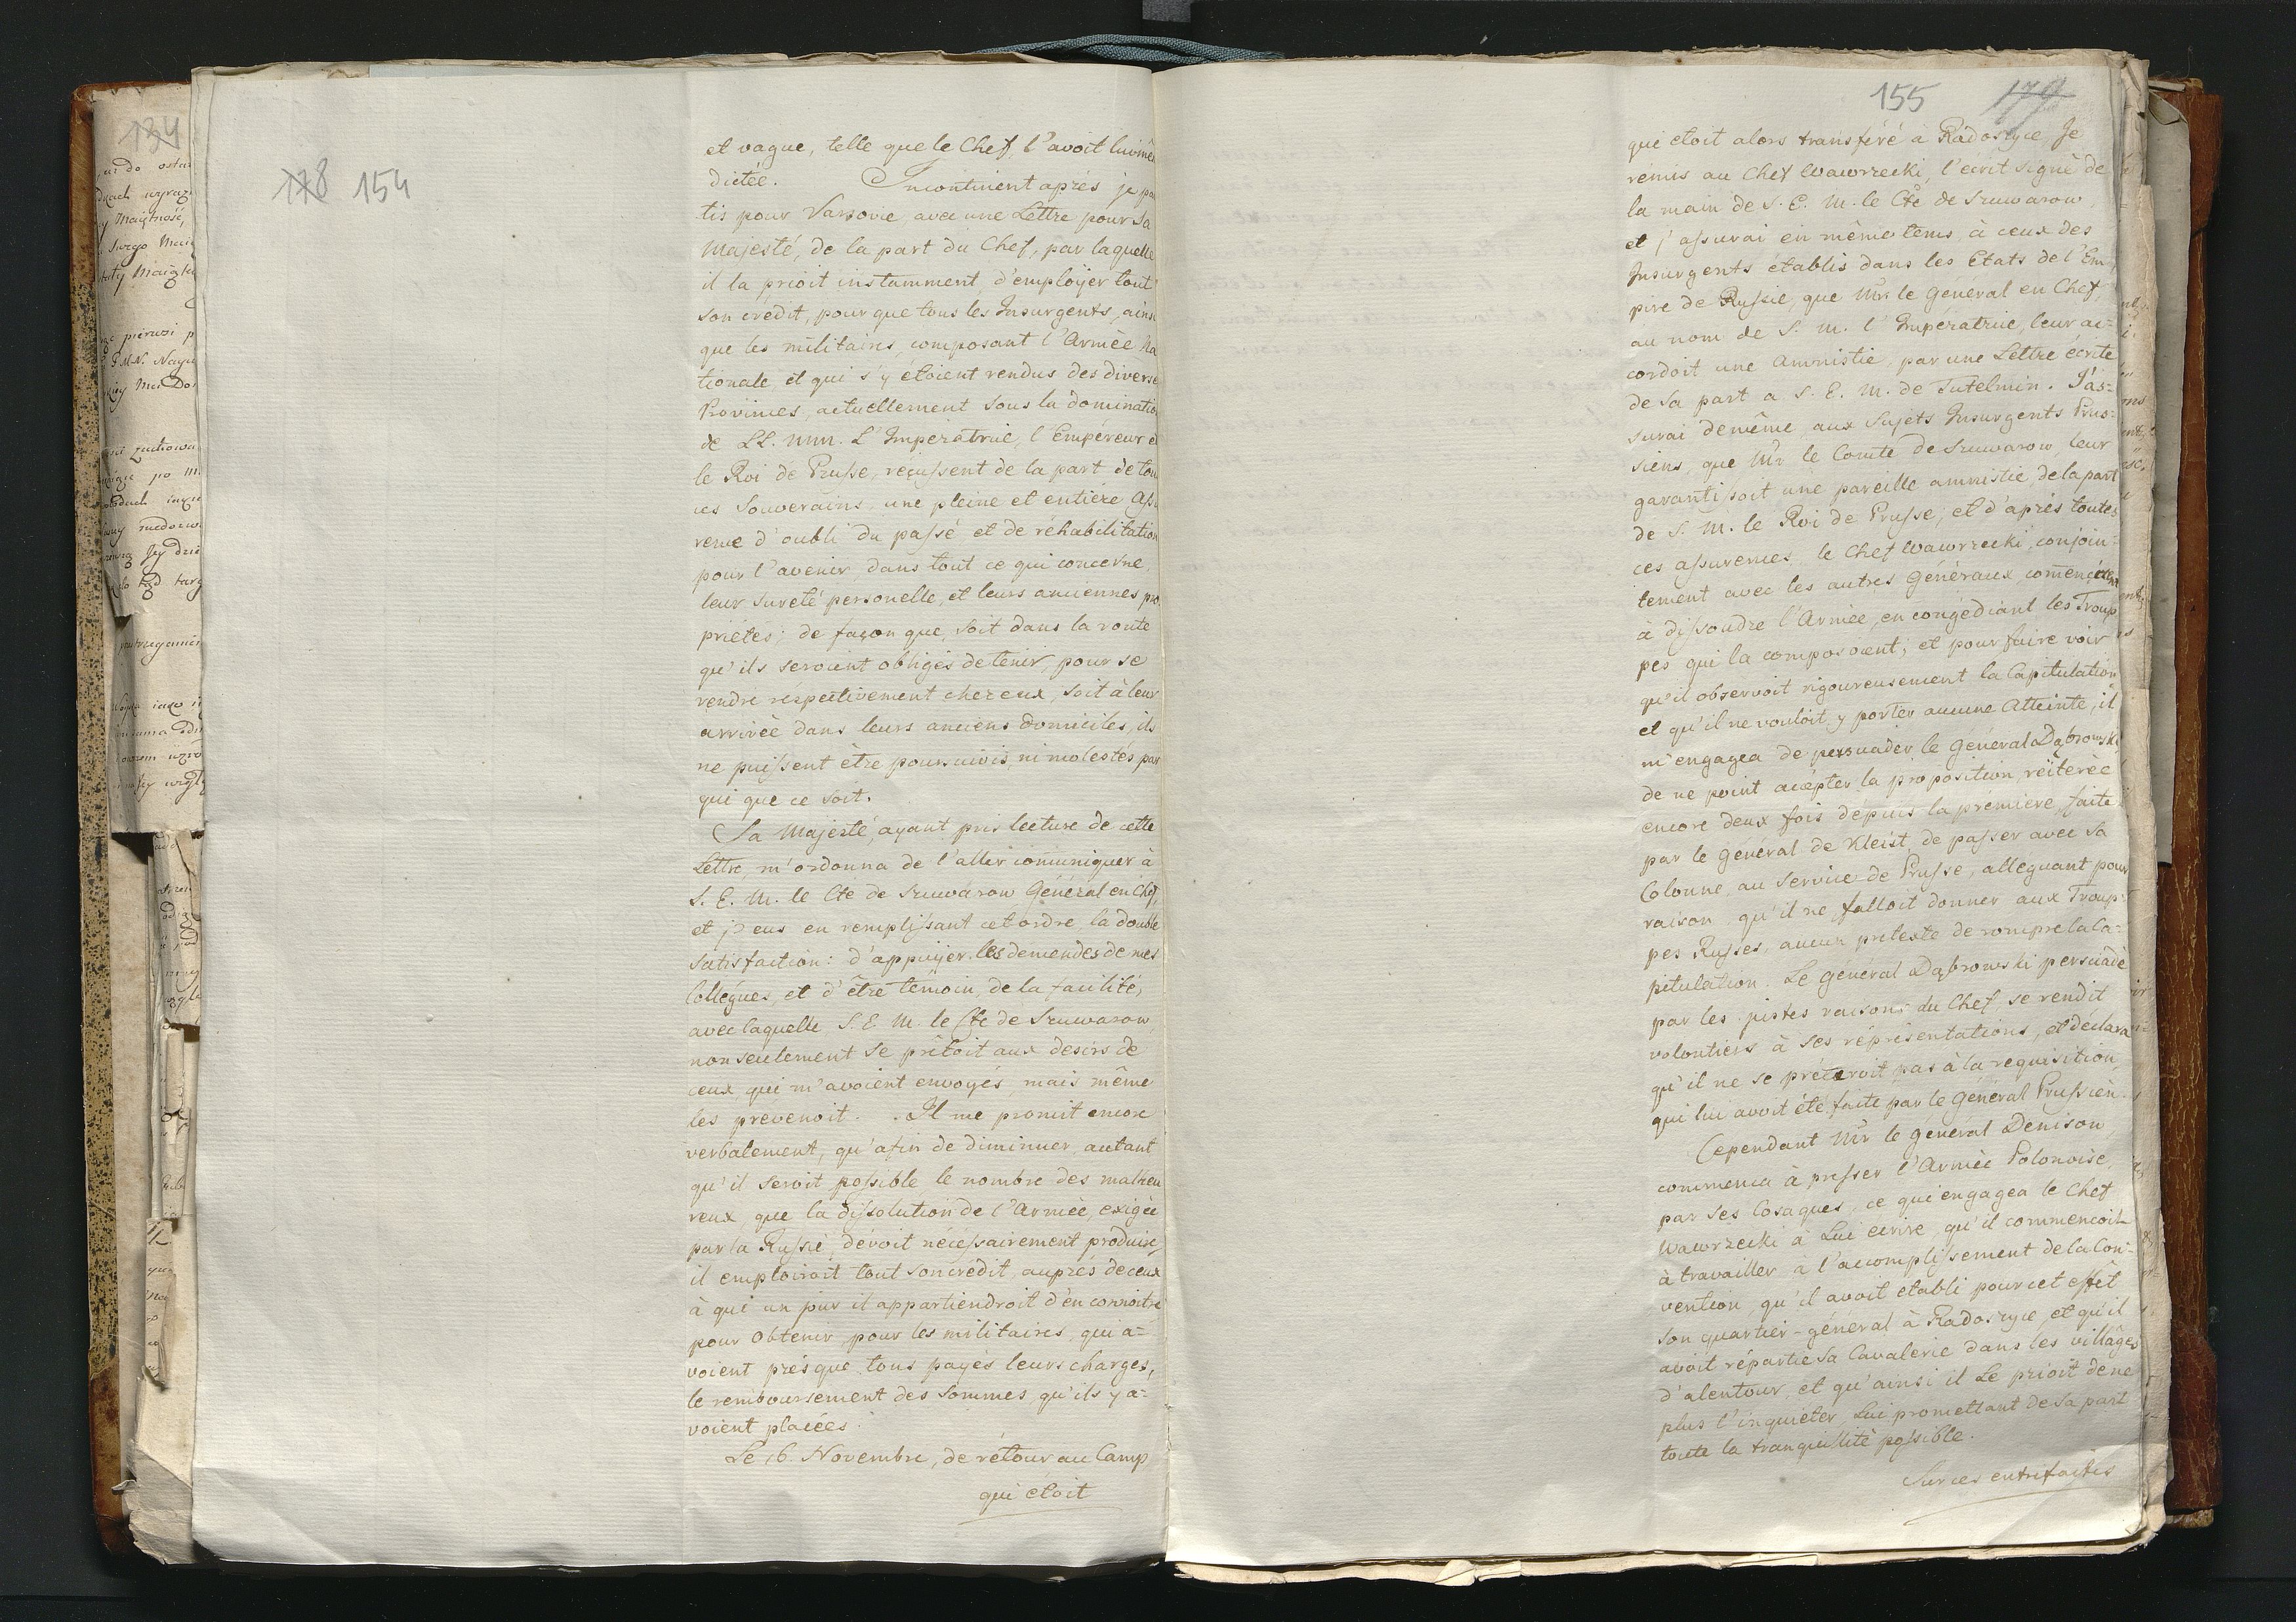 178 154
et vague, telle que le Chef, l'avoit luimê
dictée. Incontinent aprés je par
tis pour Varsovie, avec une Lettre pour Sa
Majesté, de la part du Chef, par laquelle
il la prioit instamment, d'emploÿer tout
son credit, pour que tous les Insurgents, ainsi
que les militaires, composant l'Armèe Na
tionale, et qui s'y etoient rendus des diverse
Provinces, actuellement sous la dominatio
de LL. MM. L'Imperatrice, l'Empéreur e
le Roi de Prusse, reçussent de la part de tou
ces Souverains, une pleine et entiére Assu
rence d'oubli du passé et de réhabilitation
pour l'avenir dans tout ce qui concerne,
leur sureté personelle, et leurs anciennes pro
priétes; de façon que, soit dans la route
qu'ils seroient obligés de tenir, pour se
rendre réspectivement chez eux, soit à leur
arrivèe dans leurs anciens domiciles, ils
ne puissent être poursuivis, ni molestés par
qui que ce soit.
Sa Majesté, ayant pris lecture de cette
Lettre, m'ordonna de l'aller com̅uniquer à
S. E. M. le Cte de Szuwarow Général en Chef,
et j'eus en remplissant cet ordre, la double
satisfaction: d'appuÿer les demendes de mes
Collégues, et d'être témoin, de la facilité,
avec laquelle S. E. M. le Cte de Szuwarow,
non seulement se prêtoit aux desirs de
ceux, qui m'avoient envoyés, mais même
les prevenoit. Il me promit encore
verbalement, qu'afin de diminuer, autant
qu'il seroit possible le nombre des malheu
reux, que la dissolution de l'Armèe, exigée
par la Russie, dévoit nécéssairement produire,
il emploiroit tout son crédit, auprés de ceux
à qui un jour il appartiendroit d'en connoitre
pour obtenir, pour les militaires, qui a=
voient présque tous payés leurs charges,
le remboursement des sommes, qu'ils y a=
voient placées.
Le 16. Novembre, de rétour au Camp
qui étoit
155 179
qui etoit alors transféré à Radoszyce, Je
remis au Chef Wawrzecki, l'ecrit signé de
la main de S. E. M. le Cte de Szuwarow,
et j'assurai en même tems, à ceux des
Insurgents établis dans les Etats de l'Em
pire de Russie, que Mr. le General en Chef,
au nom de S. M. l'Impératrice, leur ac=
cordoit une Amnistie, par une Lettre écrite
de sa part a S. E. M. de Tutelmin. J'as=
surai demême, aux Sujets Insurgents Prus=
siens, que Mr. le Comte de Szuwarow, leur
garantissoit une pareille amnistie, de la part
de S. M. le Roi de Prusse, et d'aprés toutes
ces assurences le Chef Wawrzecki, conjoin=
tement avec les autres Généraux, com̅encérent
à dissoudre l'Armée, en congédiant les Troup
pes qui la composoient; et pour faire voir
qu'il observoit rigoureusement la Capitulation
et qu'il ne vouloit, y porter aucune Atteinte, il
m'engagea de persuader le Général Dąbrowski
de ne point acépter, la proposition, réïterée
encore deux fois dépuis la prémiere, faite
par le Général de Kleist, de passer avec sa
Colonne, au service de Prusse, alleguant pour
raison, qu'il ne falloit donner aux Troup=
pes Russes, aucun pretexte de rompre la Ca=
pitulation. Le Général Dąbrowski persuadé
par les justes raisons du Chef, se rendit
volontiers à ses réprésentations, et déclara
qu'il ne se préteroit pas à la requisition,
qui lui avoit été faite par le Général Prussién.
Cependant Mr. le General Denison,
commenca à presser l'Armèe Polonoise,
par ses Cosaques, ce qui engagea le Chef
Wawrzecki à Lui ecrire, qu'il commencoit
à travailler a l'accomplissement de la Con=
vention, qu'il avoit etabli pour cet effêt
son quartier-général à Radoszyce, et qu'il
avoit répartie sa Cavalerie dans les villâges
d'alentour, et qu'ainsi il Le prioit de ne
plus l'inquieter, Lui promettant de sa part
toute la tranquillité possible.
Sur ces entrefaites